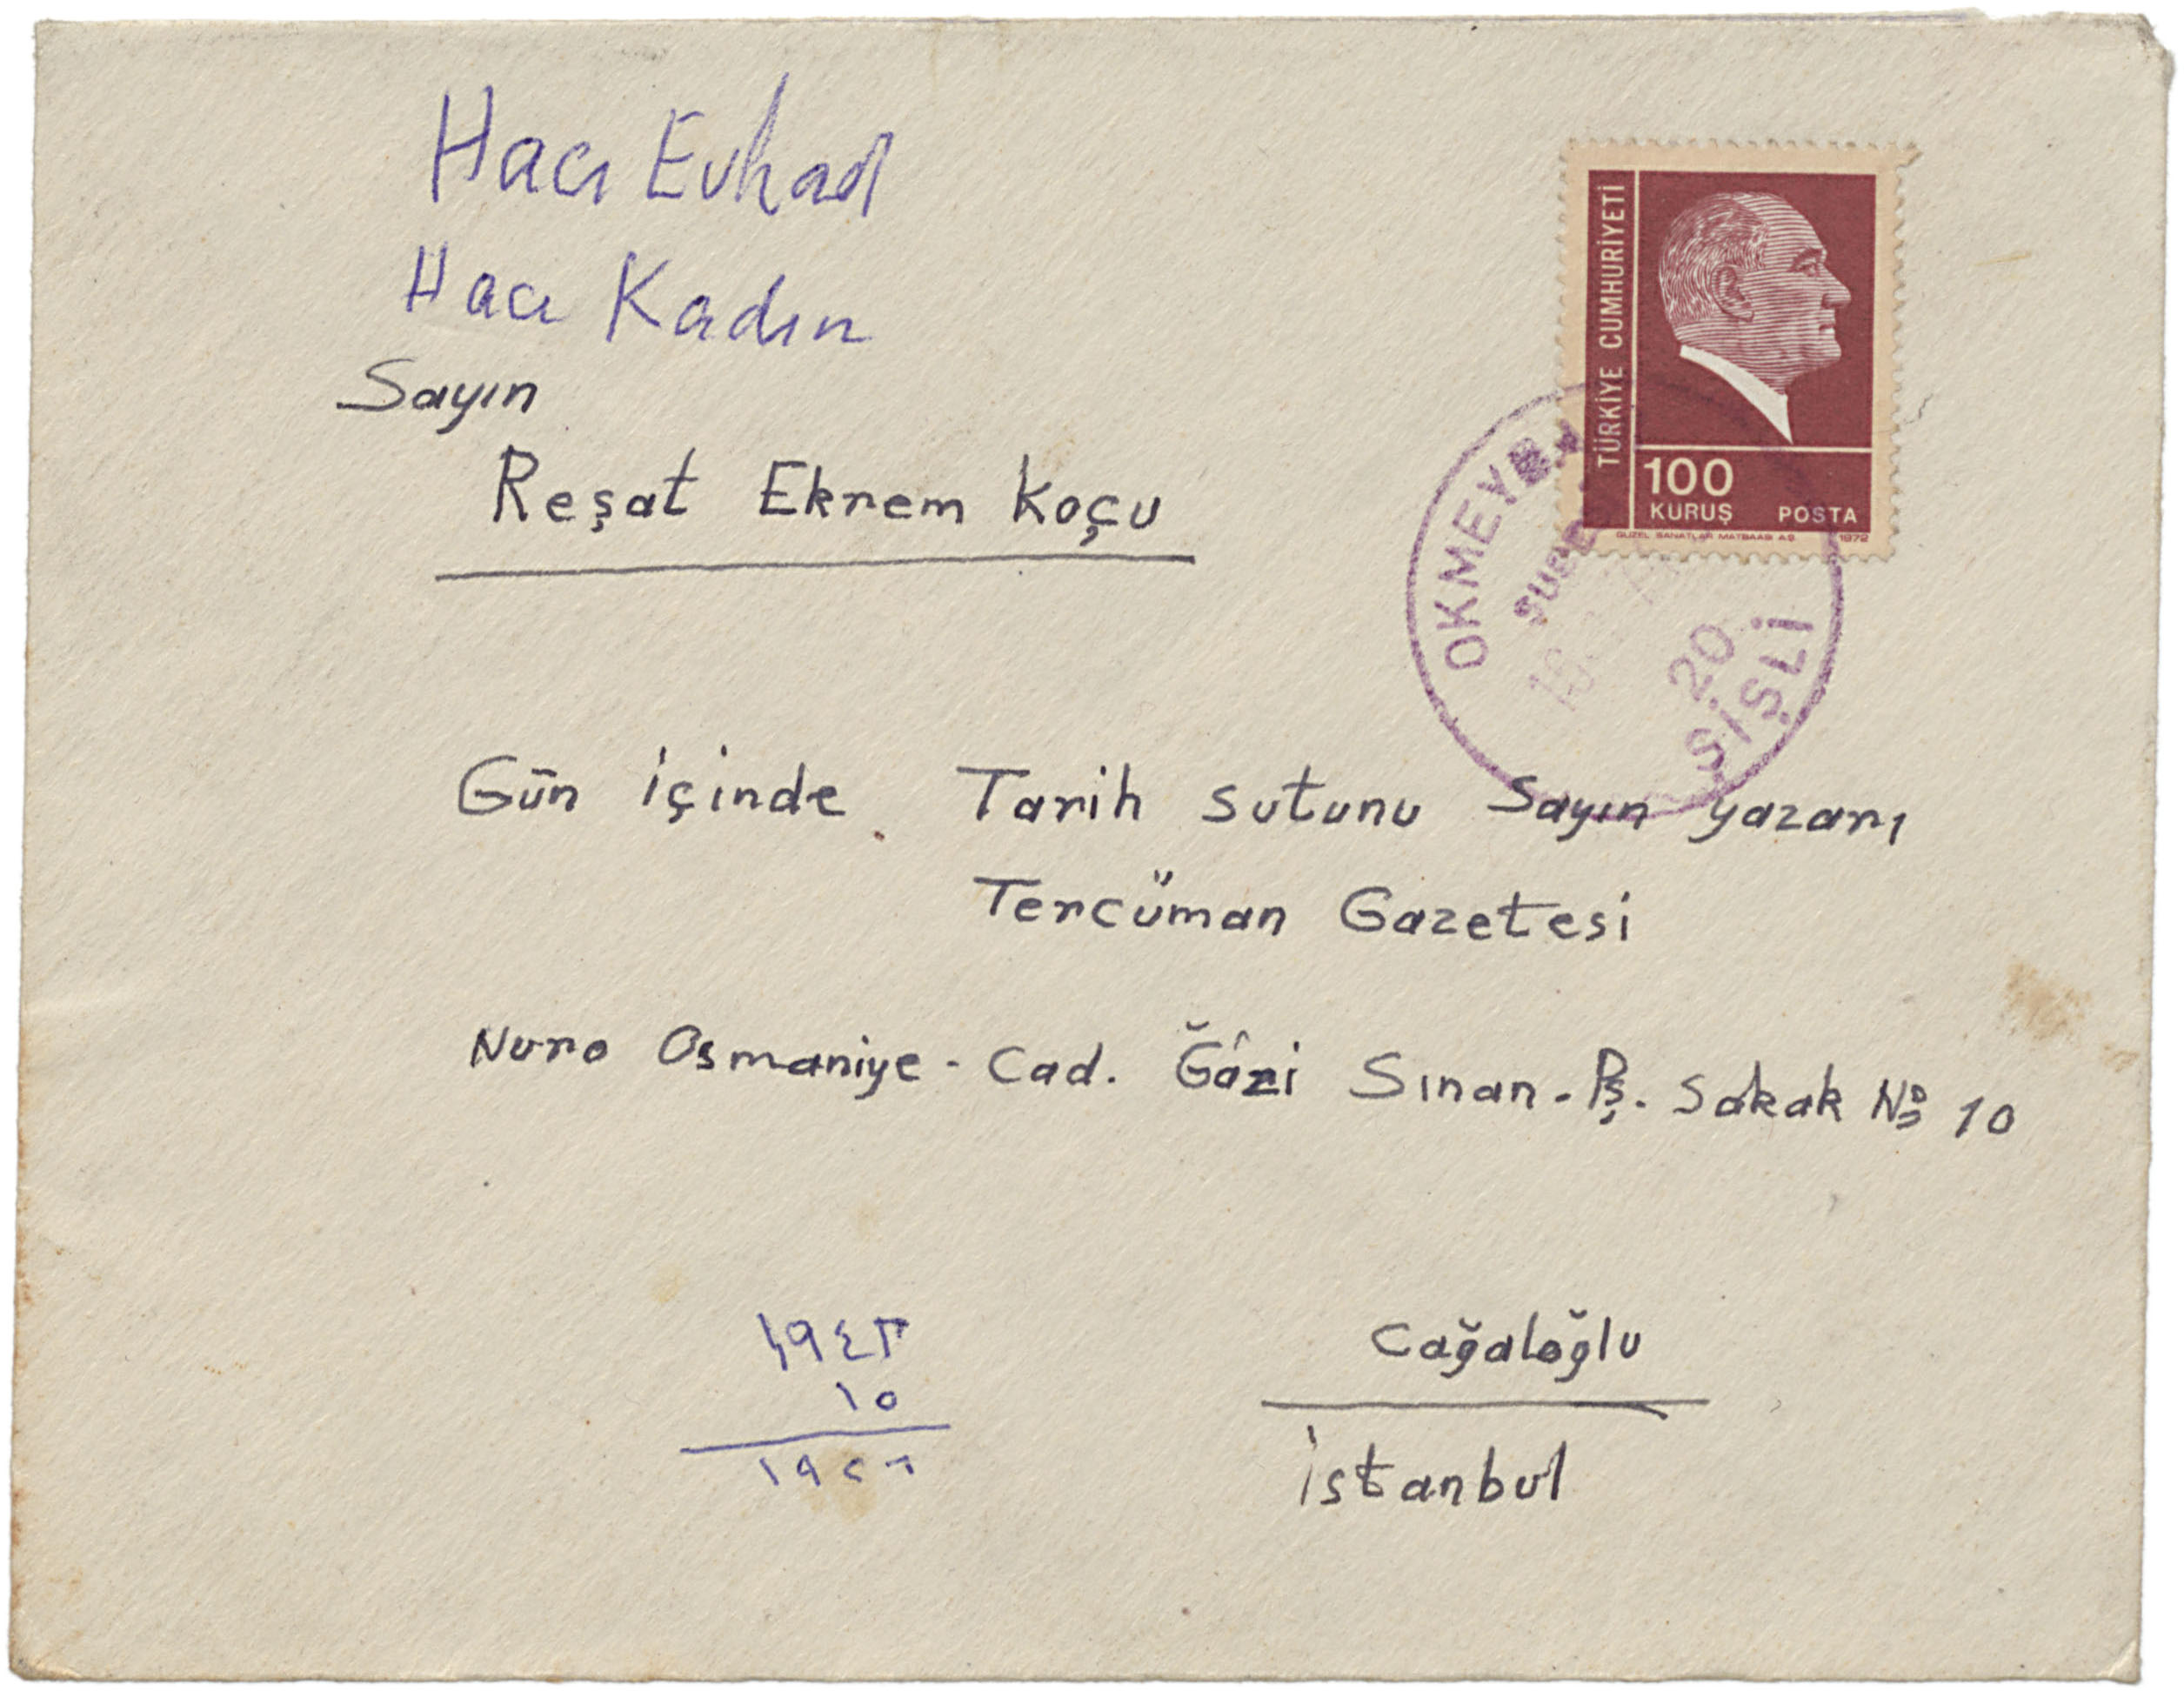 Hacı Evhad
Hacı Kadın
Sayın
Reşat Ekrem Koçu
TÜRKİYE CUMHURİYETİ
100
KURUŞ POSTA
GÜZEL SANATLAR MATBAASI AŞ. 1972
20
ŞİŞLİ
Gün içinde Tarih sutunu Sayın yazarı
Tercüman Gazetesi
Nuro Osmaniye - Cad. Ğâzi Sınan - Pş. Sokak No 10
١٩٤٣
١٥
Cağaloğlu
İstanbul